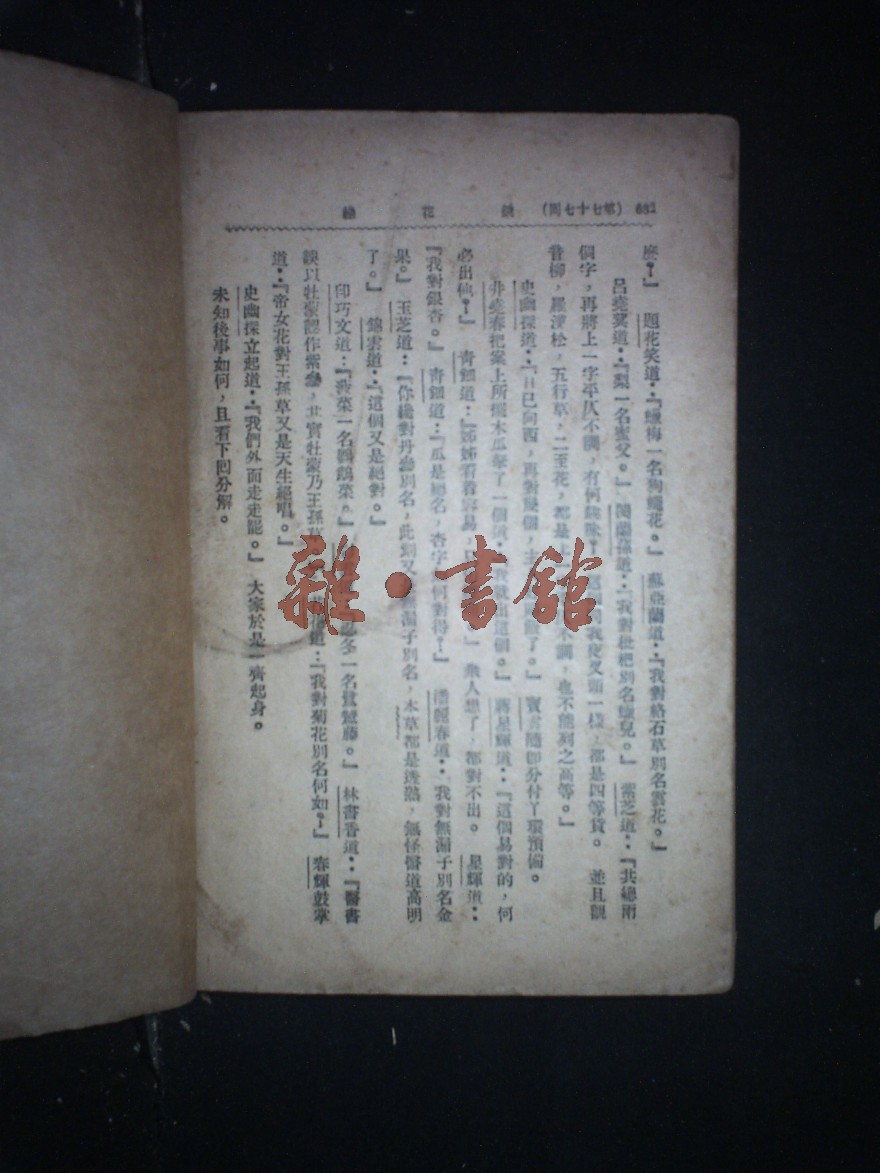 632 (第七十七回) 鏡花緣
麽？』題花笑道：『蠟梅一名狗蠅花。』蘇亞蘭道：『我對絡石草別名雲花。』
呂堯蓂道：『梨一名蜜父。』閔蘭蓀道：『我對枇杷別名蠟兒。』紫芝道：『共總兩
個字，再將上一字平仄不調，有何趣味？我夜叉頭一樣，都是四等貨。並且觀
音柳，羅漢松，五行草，二至花，都是不調，也不能列之高等。』
史幽探道：『日已向西，再對幾個，了。』寶雲隨即分付丫環預備。
井堯春把案上所擺木瓜拿了一個道：這個。』蔣星輝道：『這個易對的，何
必出他？』青鈿道：『姊姊看着容易，衆人想了，都對不出。星輝道：
『我對銀杏。』青鈿道：『瓜是總名，杏字何對得？』潘麗春道：『我對無漏子別名金
果。』玉芝道：『你纔對丹參別名，此刻又無漏子別名，本草都是透熟，無怪醫道高明
了。』錦雲道：『這個又是絕對。』
印巧文道：『菜一名鸚鵡菜。』忍冬一名鷺鷥藤。』林書香道：『醫書
誤以牡蒙認作紫參，其實牡蒙乃王孫道：『我對菊花別名何如？』春輝鼓掌
道：『帝女花對王孫草又是天生絕唱。』
史幽探立起道：『我們外面走走罷。』大家於是一齊起身。
未知後事如何，且看下回分解。
雜·書館